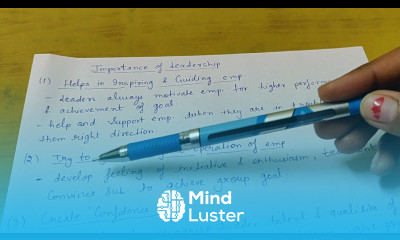 Importance of Leadership
(1) Helps in Inspiring & Guiding emp
- Leaders always motivate emp. for higher perform
& achievement of goal
- help and support emp. when they are in
them right direction
(2) Try to operation of emp
- develop feeling of initiative & enthusiasm, to
Convince sub to achieve group goal
(3) Create "Confidence
talent & qualities of
Mind
Luster